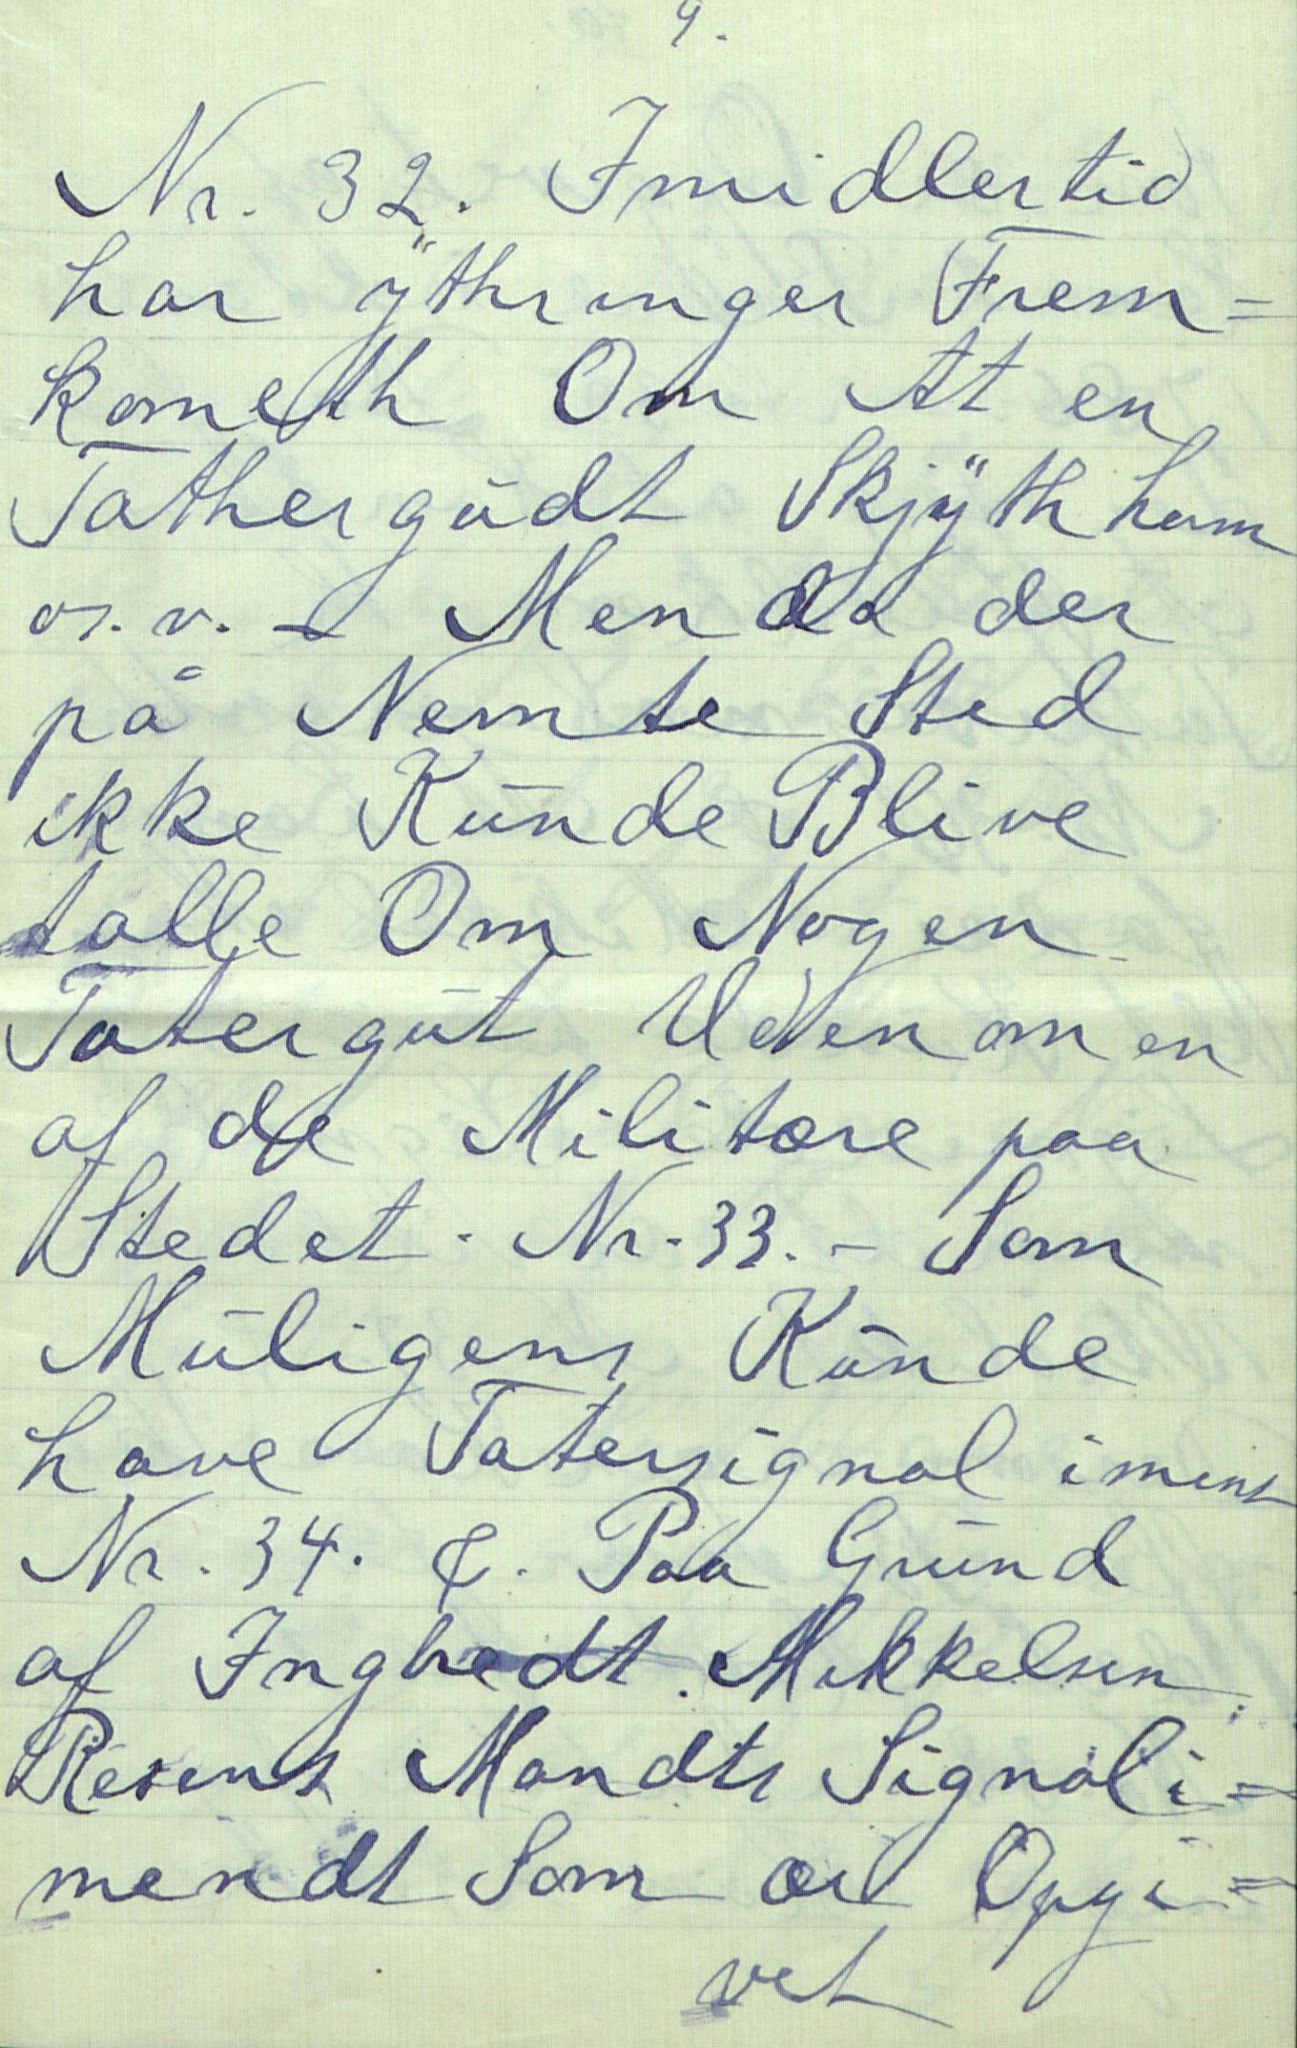 9.
Nr. 32. Imidlertid
har ÿthringer Frem=
kometh Om At en
Tathergūdt Skjÿth ham
os.v. - Men da der
på Nemte Sted
ikke Kūnde Blive
talle Om Nogen
Tatergūt Uden om en
af de Militære paa
Stedet. Nr. 33. - Som
Mūligens Kūnde
have Tatersignaliment
Nr. 34. &. Paa Grūnd
af Inghedt Mikkelsen
Resens Mandts Signali=
mendt Som er Opgi=
vet